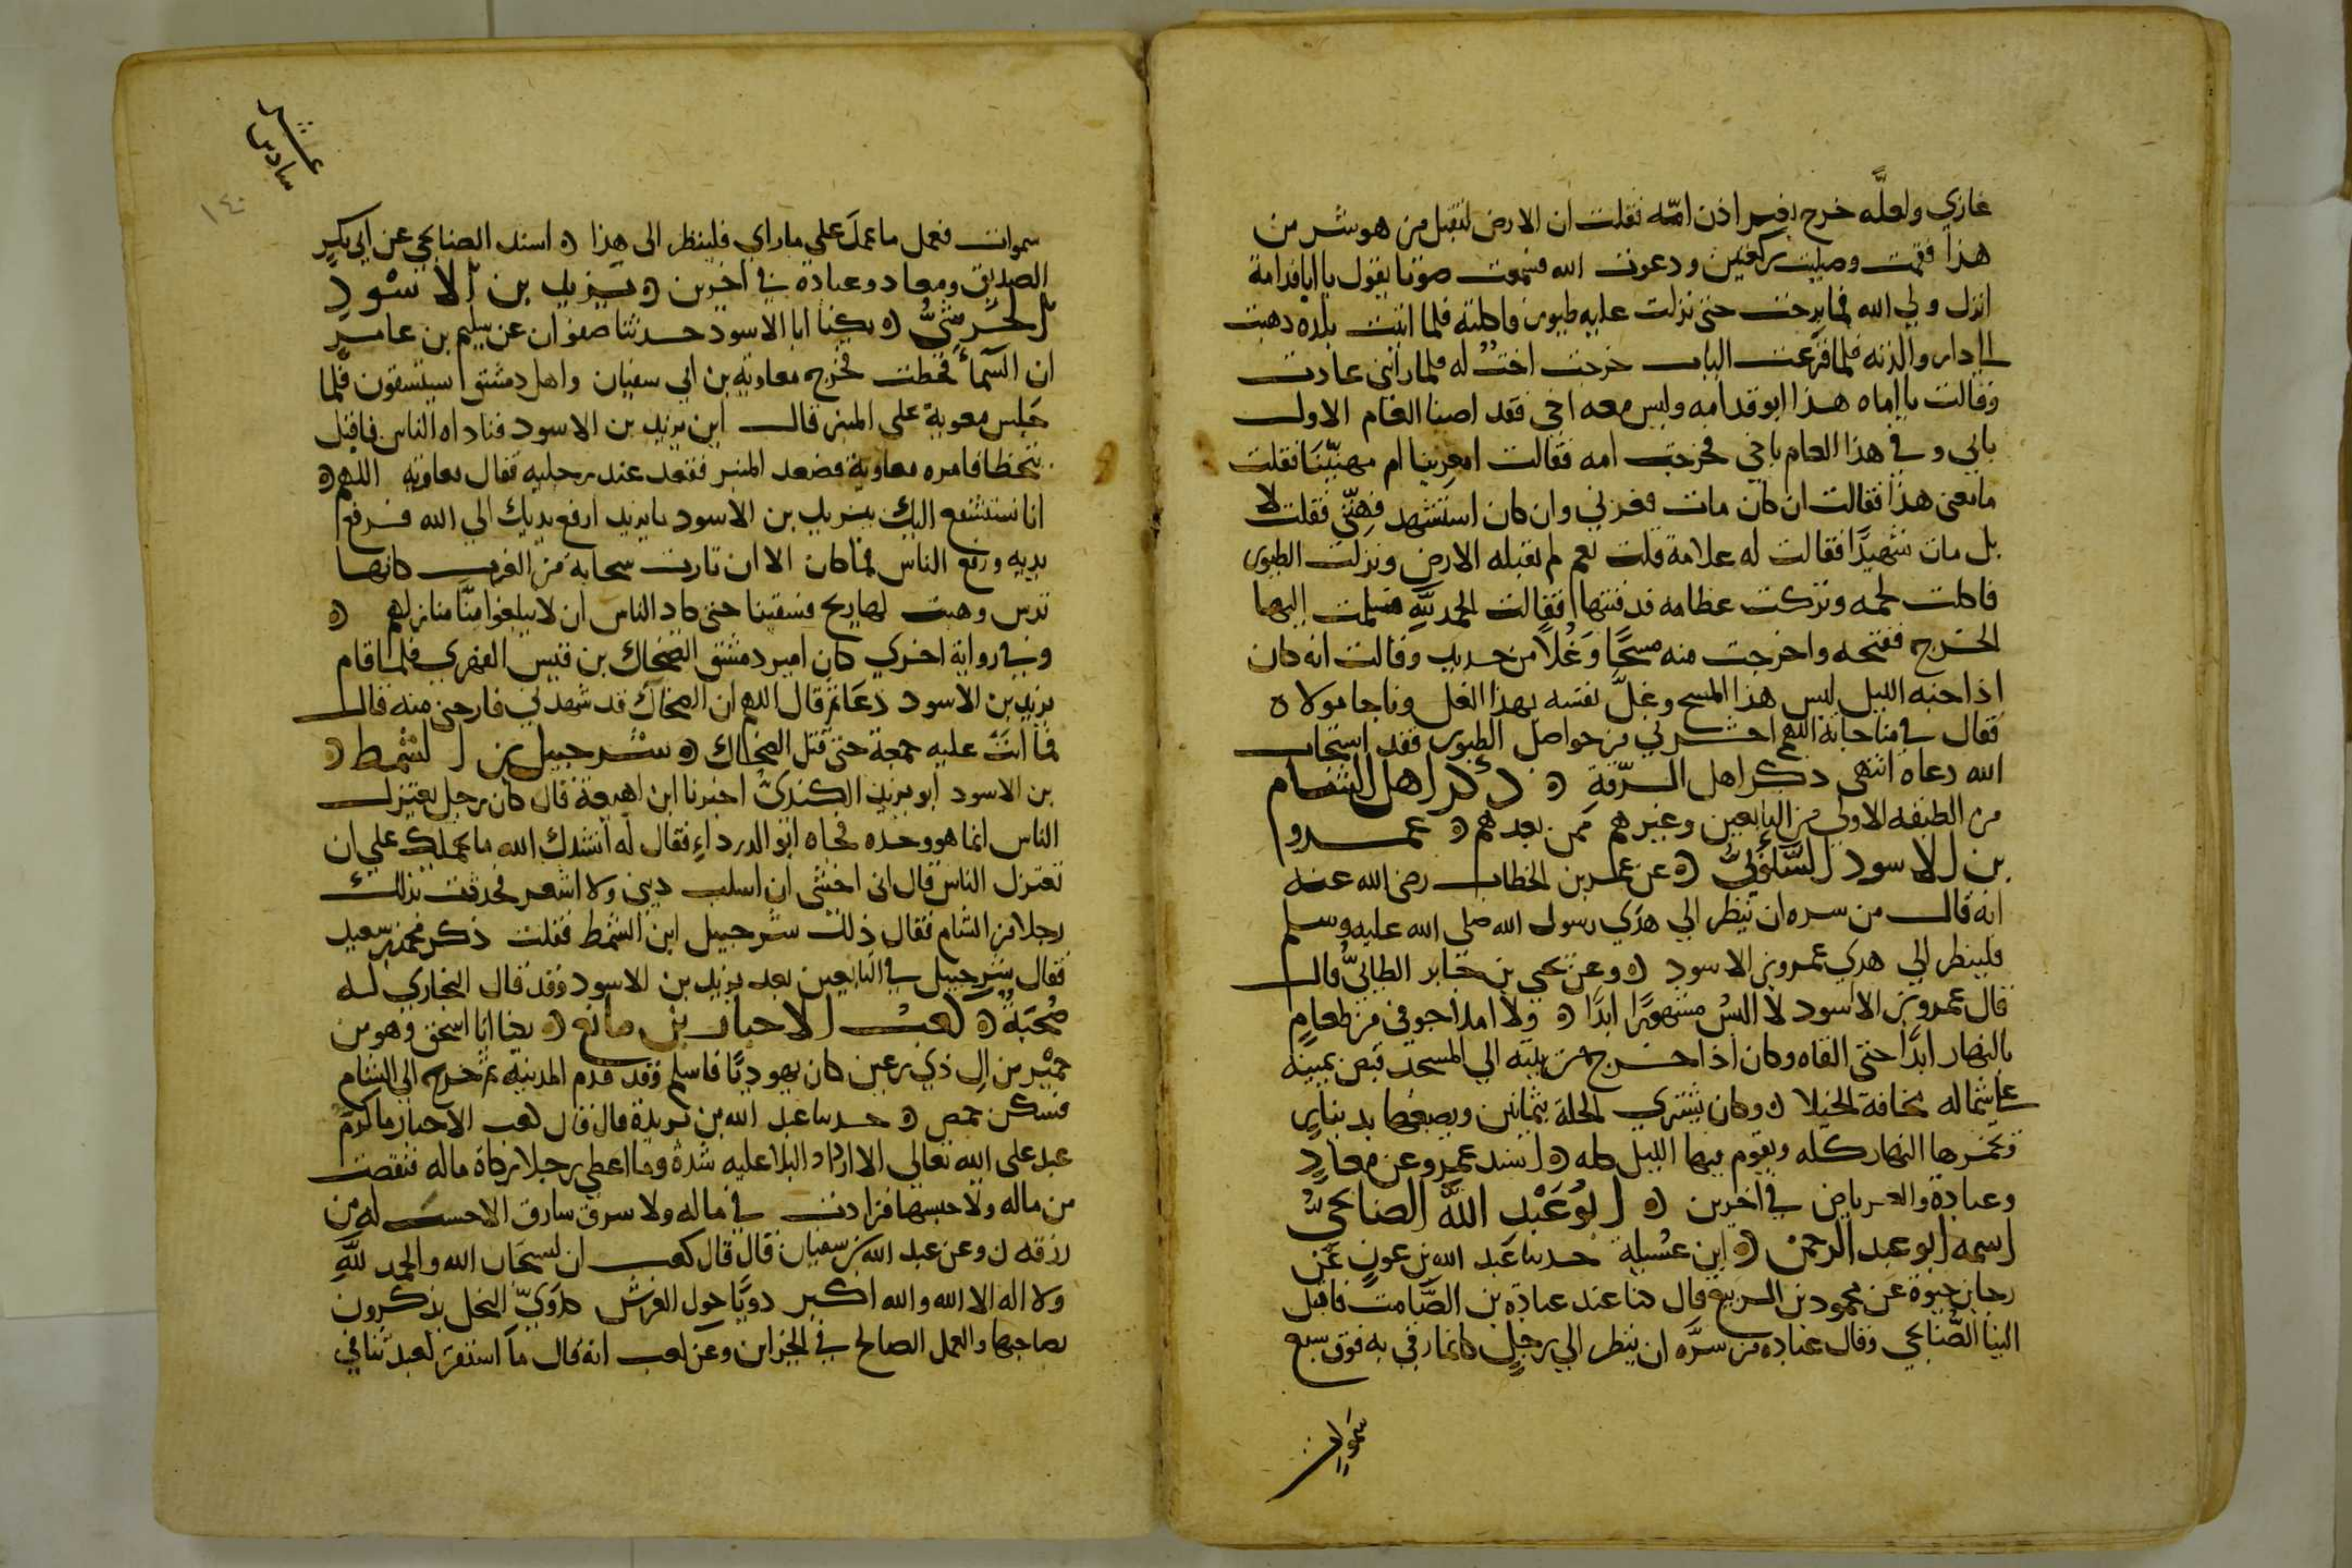 غازي ولعله خرج بغير اذن امه فقلت ان الارض لتقبل من هو شر من
هذا فقمت وصليت ركعتين ودعوت الله فسمعت صوتا يقول يا ابا قدامة
انزل ولي الله فما برحت حتى نزلت عليه طيور فاكلته فلما اتيت بلده ذهبت
الي دار والدته فلما قرعت الباب خرجت اخت له فلما راتني عادت
وقالت يا اماه هذا ابو قدامه وليس معه اخي فقد اصبنا العام الاول
بابي وفي هذا العام باخي فخرجت امه فقالت امعزيا ام مهنيا فقلت
ما معنى هذا فقالت ان كان مات فعزني وان كان استشهد فهنني فقلت لا
بل مات شهيدا فقالت له علامة قلت نعم لم تقبله الارض ونزلت الطيور
فاكلت لحمه وتركت عظامه فدفنتها فقالت الحمد لله فسلمت اليها
الخرج ففتحه واخرجت منه مسحا وغلا من حديد وقالت انه كان
اذا جنه الليل لبس هذا المسح وغل نفسه بهذا الغل وناجا مولاه
فقال في مناجاته اللهم احشرني من حواصل الطيور فقد استجاب
الله دعاه انتهى ذكر اهل الرقة ه ذكر اهل الشام
من الطبقه الاولي من التابعين وغيرهم ممن بعدهم ه عمرو
بن الاسود السلولي ه عن عمر بن الخطاب رضى الله عنه
انه قال من سره ان ينظر الي هدي رسول الله صلى الله عليه وسلم
فلينظر الي هدي عمرو بن الاسود ه وعن يحي بن جابر الطائي قال
قال عمرو بن الاسود لا البس مشهورا ابدا ه ولا املا جوفي من طعام
بالنهار ابدا حتى القاه وكان اذا خرج من بيته الي المسجد قبض بيمينه
علي شماله مخافة الخيلا ه وكان يشتري الحلة بثمانين ويصبغها بدينار
ويخمرها النهار كله ويقوم فيها الليل كله ه اسند عمرو عن معاذ
وعبادة والعرباض في اخرين ه ابو عبد الله الصنابحي
اسمه ابو عبد الرحمن ه ابن عسيلة حدثنا عبد الله بن عون عن
رجا بن حيوة عن محمود بن الربيع قال كنا عند عبادة بن الصامت فاقبل
الينا الصنابحي وقال عباده من سره ان ينظر الي رجل كانما رقي به فوق سبع
سموات
عاشر
سادس
١٤٠
سموات فعمل ما عمل علي ما راي فلينظر الى هذا ه اسند الصنابحي عن ابي بكر
الصديق ومعاذ وعبادة في اخرين ه يزيد بن الاسود
الجرشي ه يكنا ابا الاسود حدثنا صفوان عن سليم بن عامر
ان السماء قحطت فخرج معاوية بن ابي سفيان واهل دمشق يستسقون فلما
جلس معوية على المنبر قال اين يزيد بن الاسود فناداه الناس فاقبل
يتخطا فامره معاوية فصعد المنبر فقعد عند رجليه فقال معاوية اللهم ه
انا نستشفع اليك بيزيد بن الاسود يا يزيد ارفع يديك الي الله فرفع
يديه ورفع الناس فما كان الا ان ثارت سحابة من الغرب كانها
ترس وهبت لها ريح فسقينا حتى كاد الناس ان لا يبلغوا منا منازلهم ه
وفي رواية اخري كان امير دمشق الضحاك بن قيس الفهري فلما قام
يزيد بن الاسود دعا ثم قال اللهم ان الضحاك قد شهدني فارحني منه قال
فما اتت عليه جمعة حتى قتل الضحاك ه شرحبيل بن الشمط ه
بن الاسود ابو يزيد الكندي اخبرنا ابن لهيعة قال كان رجل يعتزل
الناس انما هو وحده فجاه ابو الدرداء فقال له انشدك الله ما يحملك علي ان
تعتزل الناس قال اني اخشى ان اسلب ديني ولا اشعر فحدثت بذلك
رجلا من الشام فقال ذلك شرحبيل ابن الشمط فقلت ذكر محمد بن سعيد
فقال شرحبيل في التابعين بعد يزيد بن الاسود وقد قال البخاري له
صحبة ه كعب الاحبار بن ماتع ه يكنا ابا اسحق وهو من
حمير من ال ذي رعين كان يهوديا فاسلم وقد قدم المدينة ثم خرج الي الشام
فسكن حمص ه حدثنا عبد الله بن بريدة قال قال كعب الاحبار ما كرم
عبد على الله تعالى الا ازداد البلا عليه شدة وما اعطى رجلا زكاة ماله فنقصت
من ماله ولا حبسها فزادت في ماله ولا سرق سارق الا حسب له من
رزقه ه وعن عبد الله بن سفيان قال قال كعب ان لسبحان الله والحمد لله
ولا اله الا الله والله اكبر دويا حول العرش كدوي النحل يذكرون
بصاحبها والعمل الصالح في الخزاين وعن كعب انه قال ما استقر لعبد ثنا في